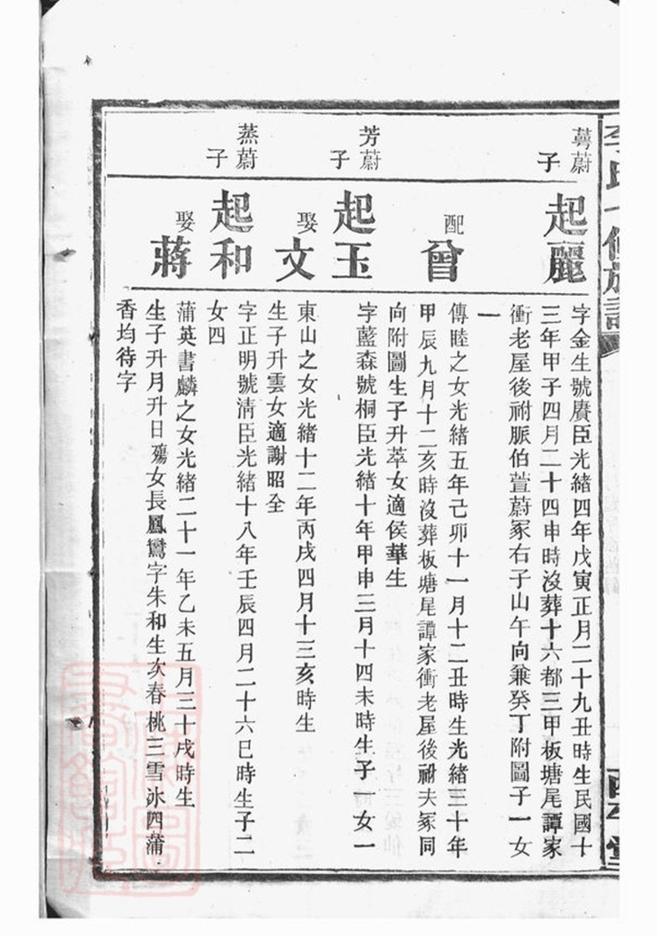 李氏七修族譜
蕚蔚
子
起麗
字金生號賡臣光緒四年戊寅正月二十九丑時生民國十
三年甲子四月二十四申時沒葬十六都三甲板塘尾譚家
衝老屋後祔脈伯萱蔚冢右子山午向兼癸丁附圖子一女
一
配
曾
傳睦之女光緒五年己卯十一月十二丑時生光緒三十年
甲辰九月十二亥時沒葬板塘尾譚家衝老屋後祔夫冢同
向附圖生子升萃女適侯華生
芳蔚
子
起玉
字藍森號桐臣光緒十年甲申三月十四未時生子一女一
娶
文
東山之女光緒十二年丙戌四月十三亥時生
生子升雲女適謝昭全
蒸蔚
子
起和
字正明號淸臣光緒十八年壬辰四月二十六巳時生子二
女四
娶
蔣
蒲英書麟之女光緒二十一年乙未五月三十戌時生
生子升月升日殤女長鳳鸞字朱和生次春桃三雪冰四蒲
香均待字